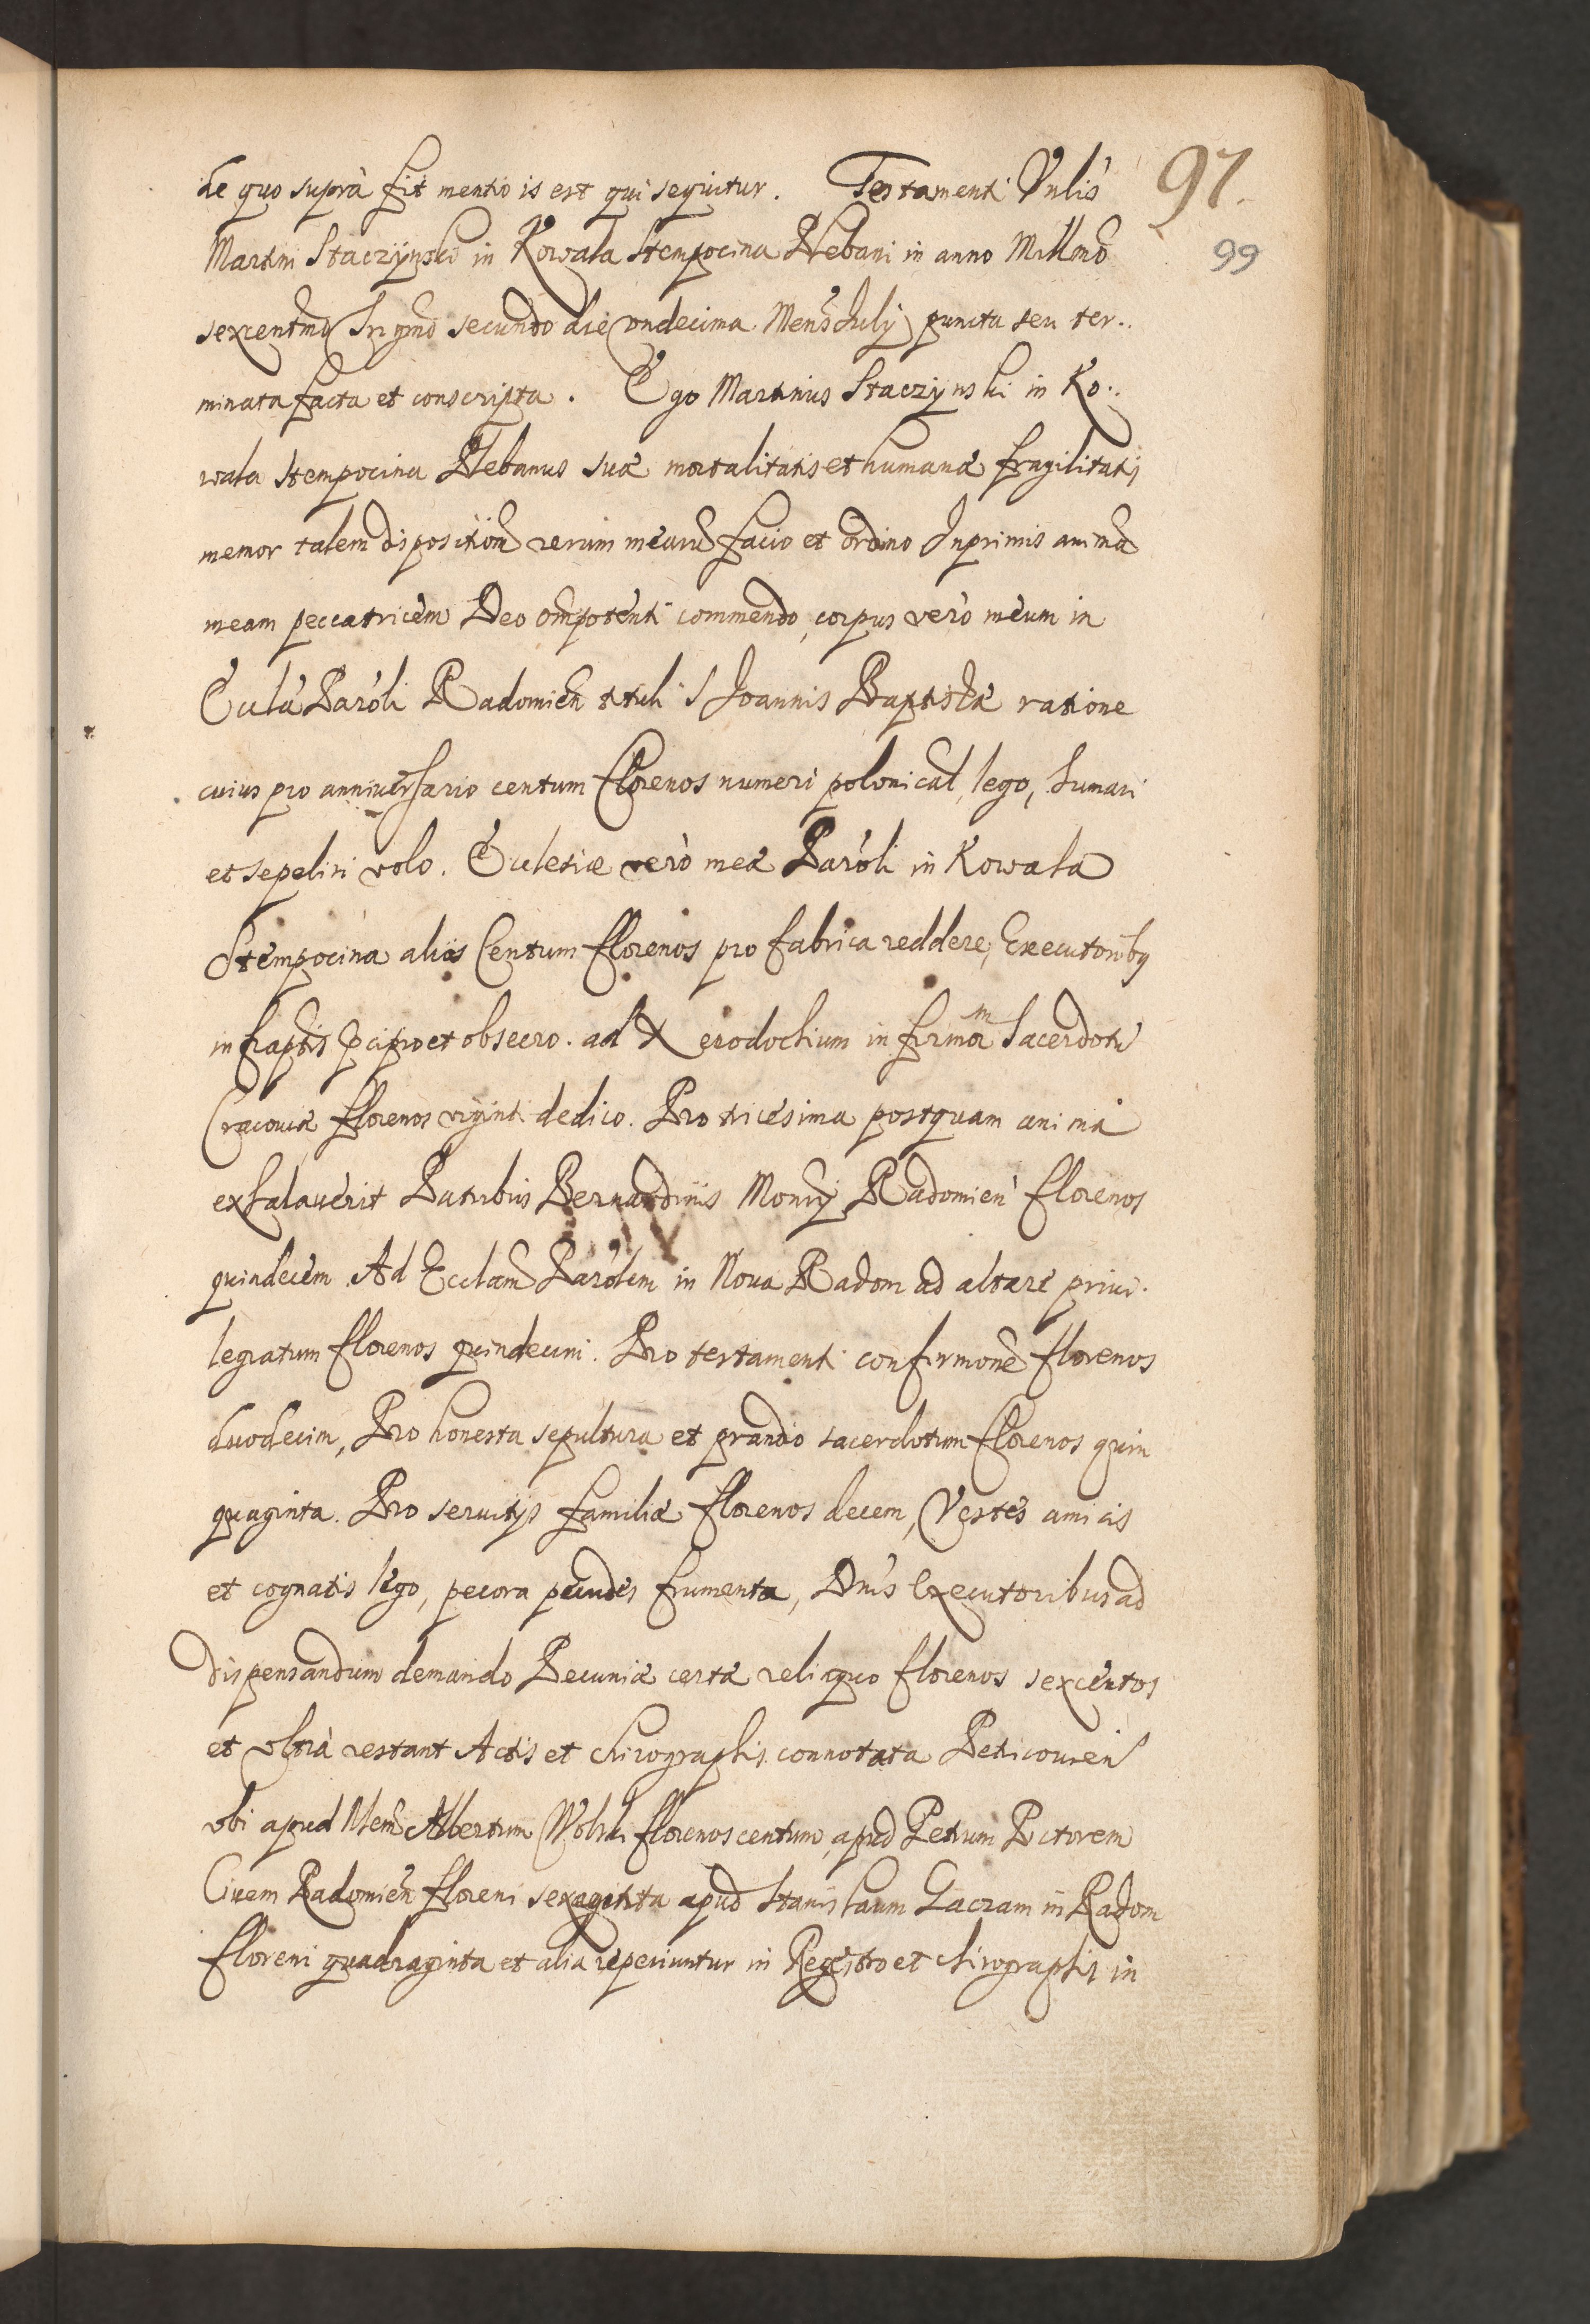 97.
99
de quo suprà fit mentio is est qui sequitur. Testamenti Vnlis
Martini Staczÿnski in Kowala Stempocina Plebani in anno Millmo
sexcentmo Trigmo secundo die vndecima Mens July puncta seu ter..
minata facta et conscripta. Ego Martinus Staczÿnski in Ko..
wala Stempocina Plebanus suæ mortalitatis et humanæ fragilitatis
memor talem dispositiom rerum mearu facio et ordino Inprimis anima
meam peccatricem Deo omipotenti commendo, corpus verò meum in
Ecclia Paroli Radomien tituli S Joannis Baptistæ ratione
cuius pro anniuersario centum florenos numeri polonical, lego, humari
et sepeliri volo. Ecclesiæ verò meæ Paroli in Kowala
Stempocina alios Centum florenos pro fabrica reddere, Executoribq
infraptis pcipio et obsecro. ad Xerodochium infirmorm Sacerdotu
Cracouiæ florenos viginti dedico. Pro tricesima postquam anima
exhalauerit Patribus Bernardinis Monrÿ Radomien florenos
quindecem. Ad Ecclam Parolem in Noua Radom ad altare priui.
legiatum florenos quindecim. Pro testamenti confirmone florenos
duodecim, Pro honesta sepultura et prandio sacerdotum florenos quin
quaginta. Pro seruitijs familiæ florenos decem, Vestes amicis
et cognatis lego, pecora pecudes frumenta, Dnis Executoribus ad
dispensandum demando Pecuniæ certæ relinquo florenos sexcentos
et vltrà restant Actis et chirographis connotata Petricouien
vbi apud Nlem Albertum Wolski florenos centum, apud Petrum Pictorem
Ciuem Radomien floreni sexaginta apud Stanislaum Gaczam in Radom
floreni quadraginta et alia reperiuntur in Registro et chirographis in